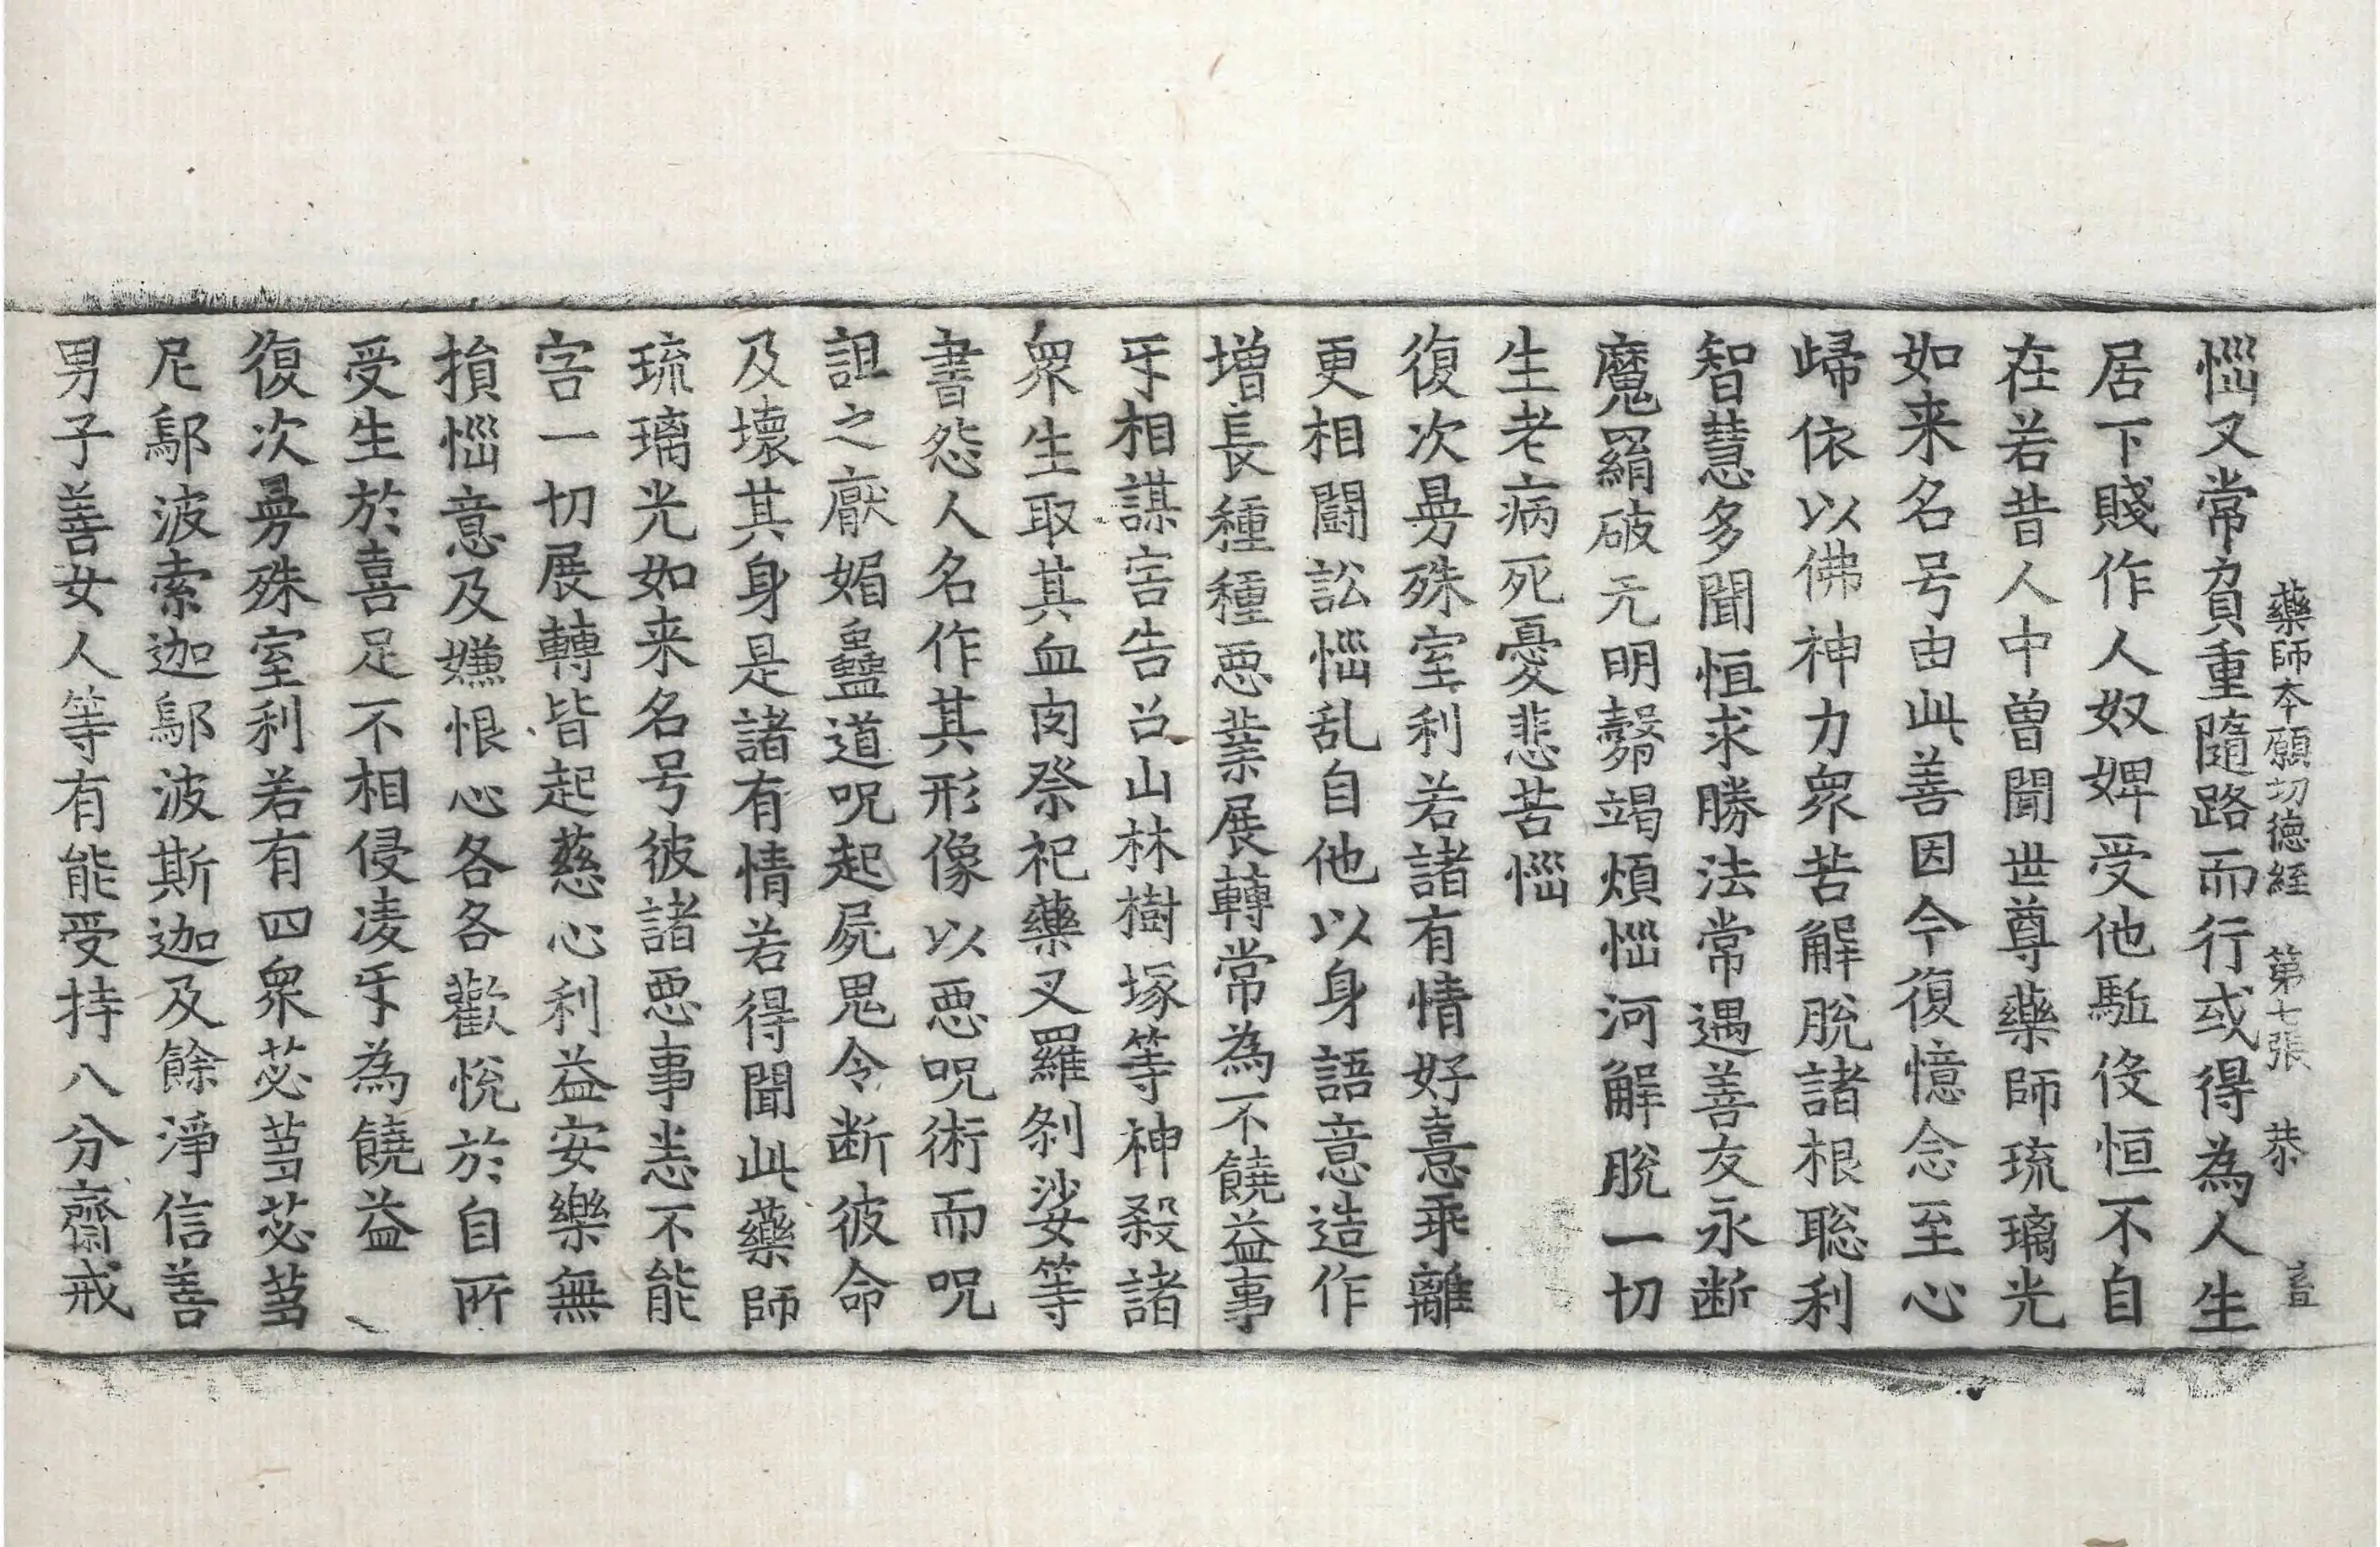 藥師本願功德經 第七張 恭
惱又常負重隨路而行或得為人生
居下賤作人奴婢受他駈伇恒不自
在若昔人中曾聞世尊藥師琉璃光
如来名号由此善因今復憶念至心
歸依以佛神力衆苦解脫諸根聡利
智慧多聞恒求勝法常遇善友永断
魔羂破无明㲉竭煩惱河解脫一切
生老病死憂悲苦惱
復次曼殊室利若諸有情好憙乖離
更相鬪訟惱乱自他以身語意造作
增長種種惡業展轉常為不饒益事
㸦相謀害告召山林樹塚等神殺諸
衆生取其血肉祭祀藥叉羅刹娑等
書怨人名作其形像以惡呪術而呪
詛之厭媚蠱道呪起屍鬼令断彼命
及壞其身是諸有情若得聞此藥師
琉璃光如来名号彼諸惡事悉不能
害一切展轉皆起慈心利益安樂無
損惱意及嫌恨心各各歡悅於自所
受生於喜足不相侵凌㸦為饒益
復次曼殊室利若有四衆苾蒭苾蒭
尼鄔波索迦鄔波斯迦及餘淨信善
男子善女人等有能受持八分齋戒